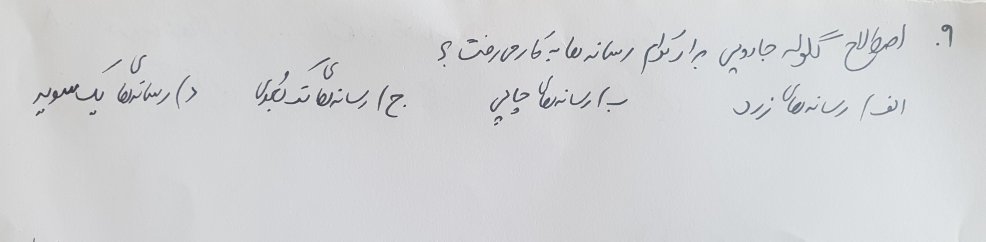 ۹. اصطلاح گلوله جادویی برای کدام رسانه ها به کار می رفت؟
الف) رسانه های زرد ب) رسانه های چاپی ج) رسانه های تک بُعدی د) رسانه های یک سویه